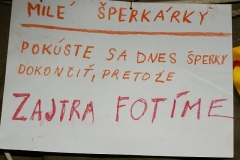 MILÉ ŠPERKÁRKY
POKÚSTE SA DNES ŠPERKY
DOKONČIŤ, PRETOŽE
ZAJTRA FOTÍME